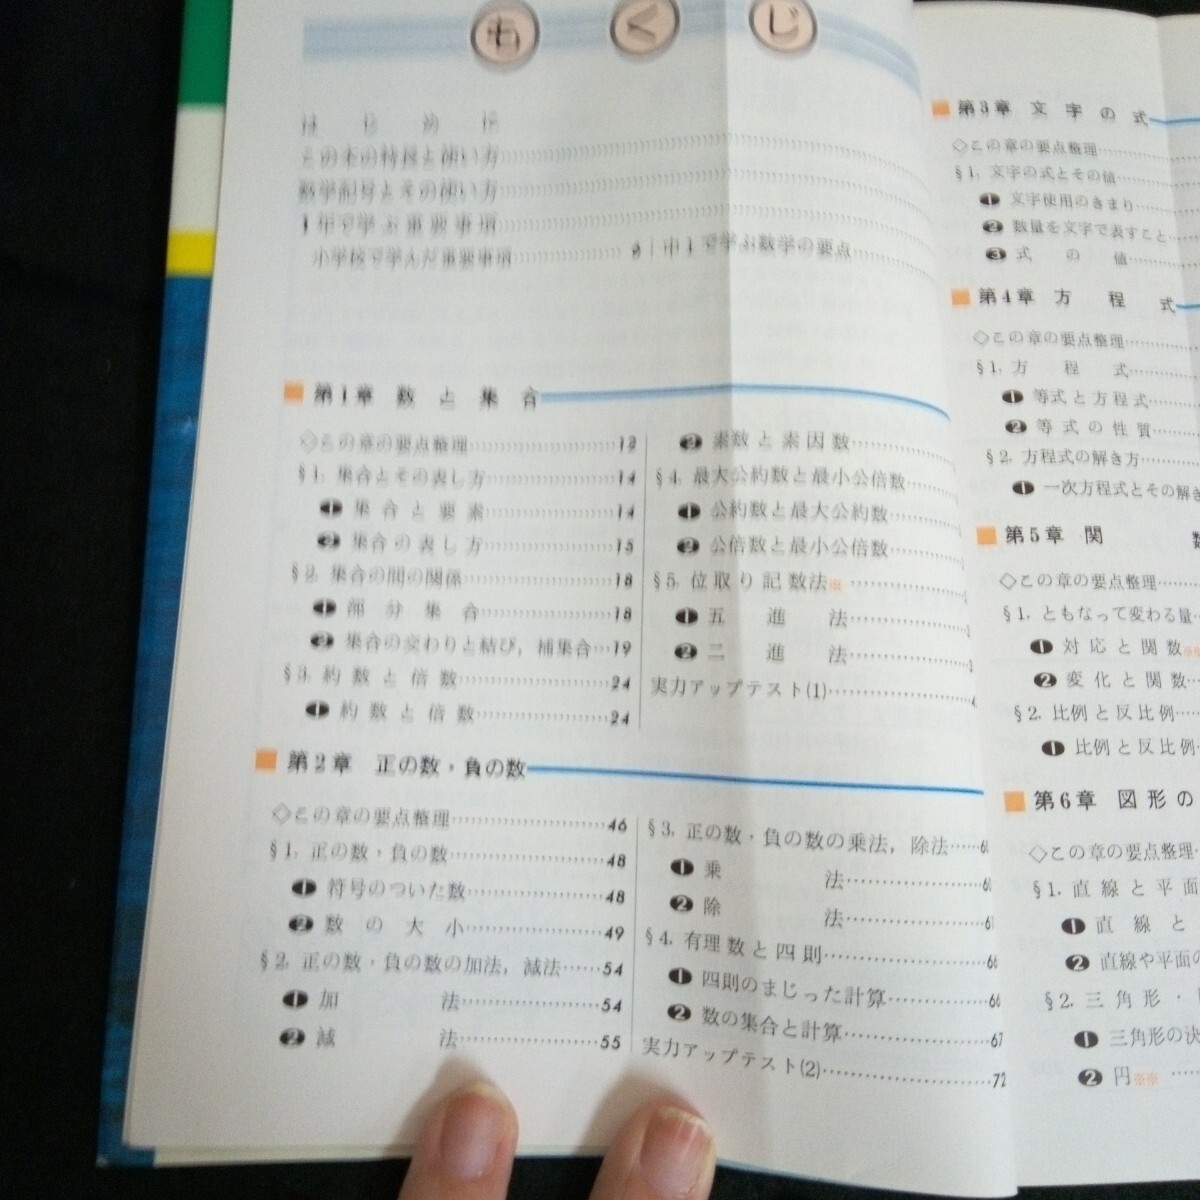 もくじ
はじめに
この本の特長と使い方
数学記号とその使い方
1年で学ぶ重要事項
小学校で学んだ重要事項
中1で学ぶ数学の要点
第1章 数と集合
◇この章の要点整理……12
§1. 集合とその表し方……14
❶ 集合と要素……14
❷ 集合の表し方……15
§2. 集合の間の関係……18
❶ 部分集合……18
❷ 集合の交わりと結び，補集合…19
§3. 約数と倍数……24
❶ 約数と倍数……24
❷ 素数と素因数……
§4. 最大公約数と最小公倍数……
❶ 公約数と最大公約数……
❷ 公倍数と最小公倍数……
§5. 位取り記数法※……
❶ 五進法……
❷ 二進法……
実力アップテスト(1)……
第2章 正の数・負の数
◇この章の要点整理……46
§1. 正の数・負の数……48
❶ 符号のついた数……48
❷ 数の大小……49
§2. 正の数・負の数の加法，減法……54
❶ 加法……54
❷ 減法……55
§3. 正の数・負の数の乗法，除法……
❶ 乗法……
❷ 除法……61
§4. 有理数と四則……66
❶ 四則のまじった計算……66
❷ 数の集合と計算……67
実力アップテスト(2)……72
第3章 文字の式
◇この章の要点整理……
§1. 文字の式とその値……
❶ 文字使用のきまり……
❷ 数量を文字で表すこと…
❸ 式の値……
第4章 方程式
◇この章の要点整理……
§1. 方程式……
❶ 等式と方程式……
❷ 等式の性質……
§2. 方程式の解き方……
❶ 一次方程式とその解き
第5章 関数
◇この章の要点整理……
§1. ともなって変わる量…
❶ 対応と関数※※
❷ 変化と関数…
§2. 比例と反比例……
❶ 比例と反比例…
第6章 図形の
◇この章の要点整理…
§1. 直線と平面
❶ 直線と
❷ 直線や平面の
§2. 三角形・
❶ 三角形の決
❷ 円※※……